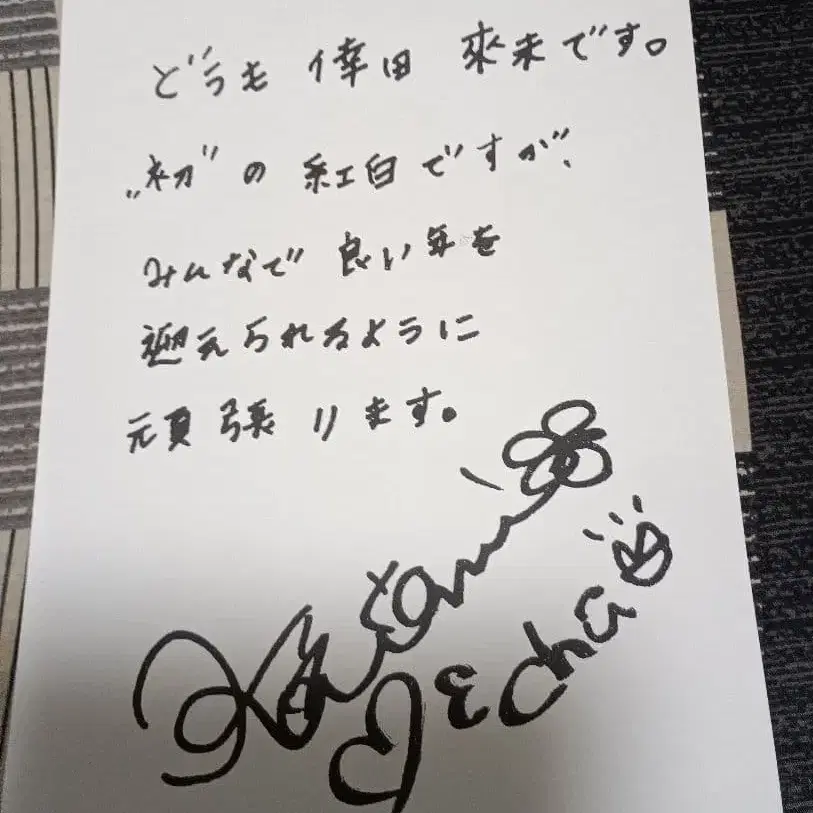 どうも 倖田 來未です。
„初” の 紅白ですが、
みんなで 良い年を
迎えられるように
頑張ります。